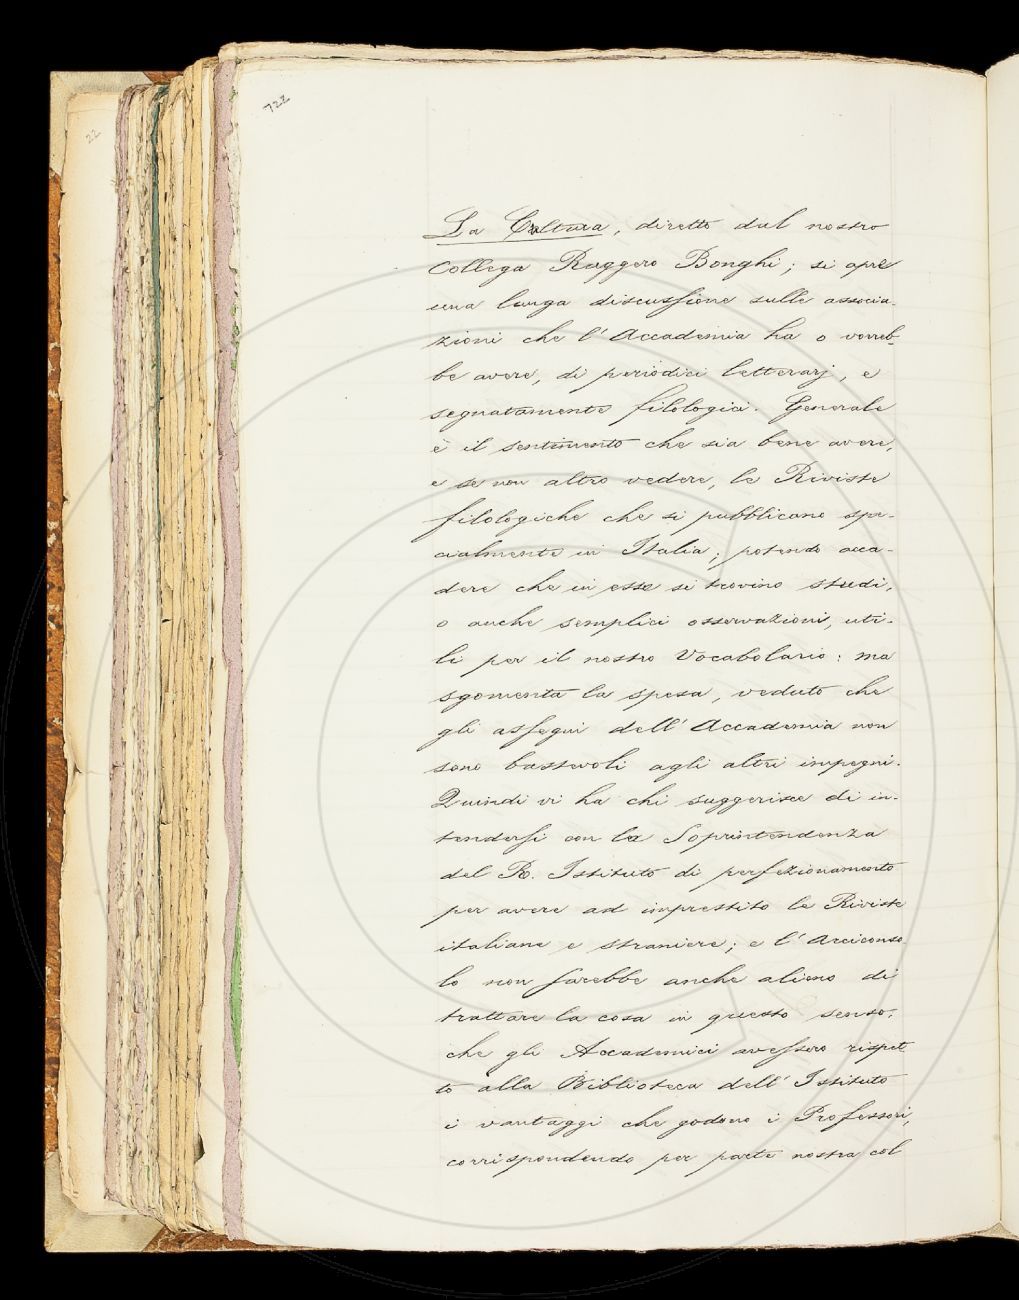 722
22
La Cultura, diretto dal nostro
collega Ruggero Bonghi; si apre
una lunga discussione sulle associa-
zioni che l'Accademia ha o vorreb-
be avere, di periodici letterarj, e
segnatamente filologici. Generale
è il sentimento che sia bene avere,
e se non altro vedere, le Riviste
filologiche che si pubblicano spe-
cialmente in Italia; potendo acca-
dere che in esse si trovino studi,
o anche semplici osservazioni, uti-
li per il nostro Vocabolario: ma
sgomenta la spesa, veduto che
gli assegni dell'Accademia non
sono bastevoli agli altri impegni.
Quindi vi ha chi suggerisce di in-
tendersi con la Soprintendenza
del R. Istituto di perfezionamento
per avere ad imprestito le Riviste
italiane e straniere; e l'Arciconso
lo non sarebbe anche alieno di
trattare la cosa in questo senso,
che gli Accademici avessero rispet
to alla Biblioteca dell'Istituto
i vantaggi che godono i Professori,
corrispondendo per parte nostra col